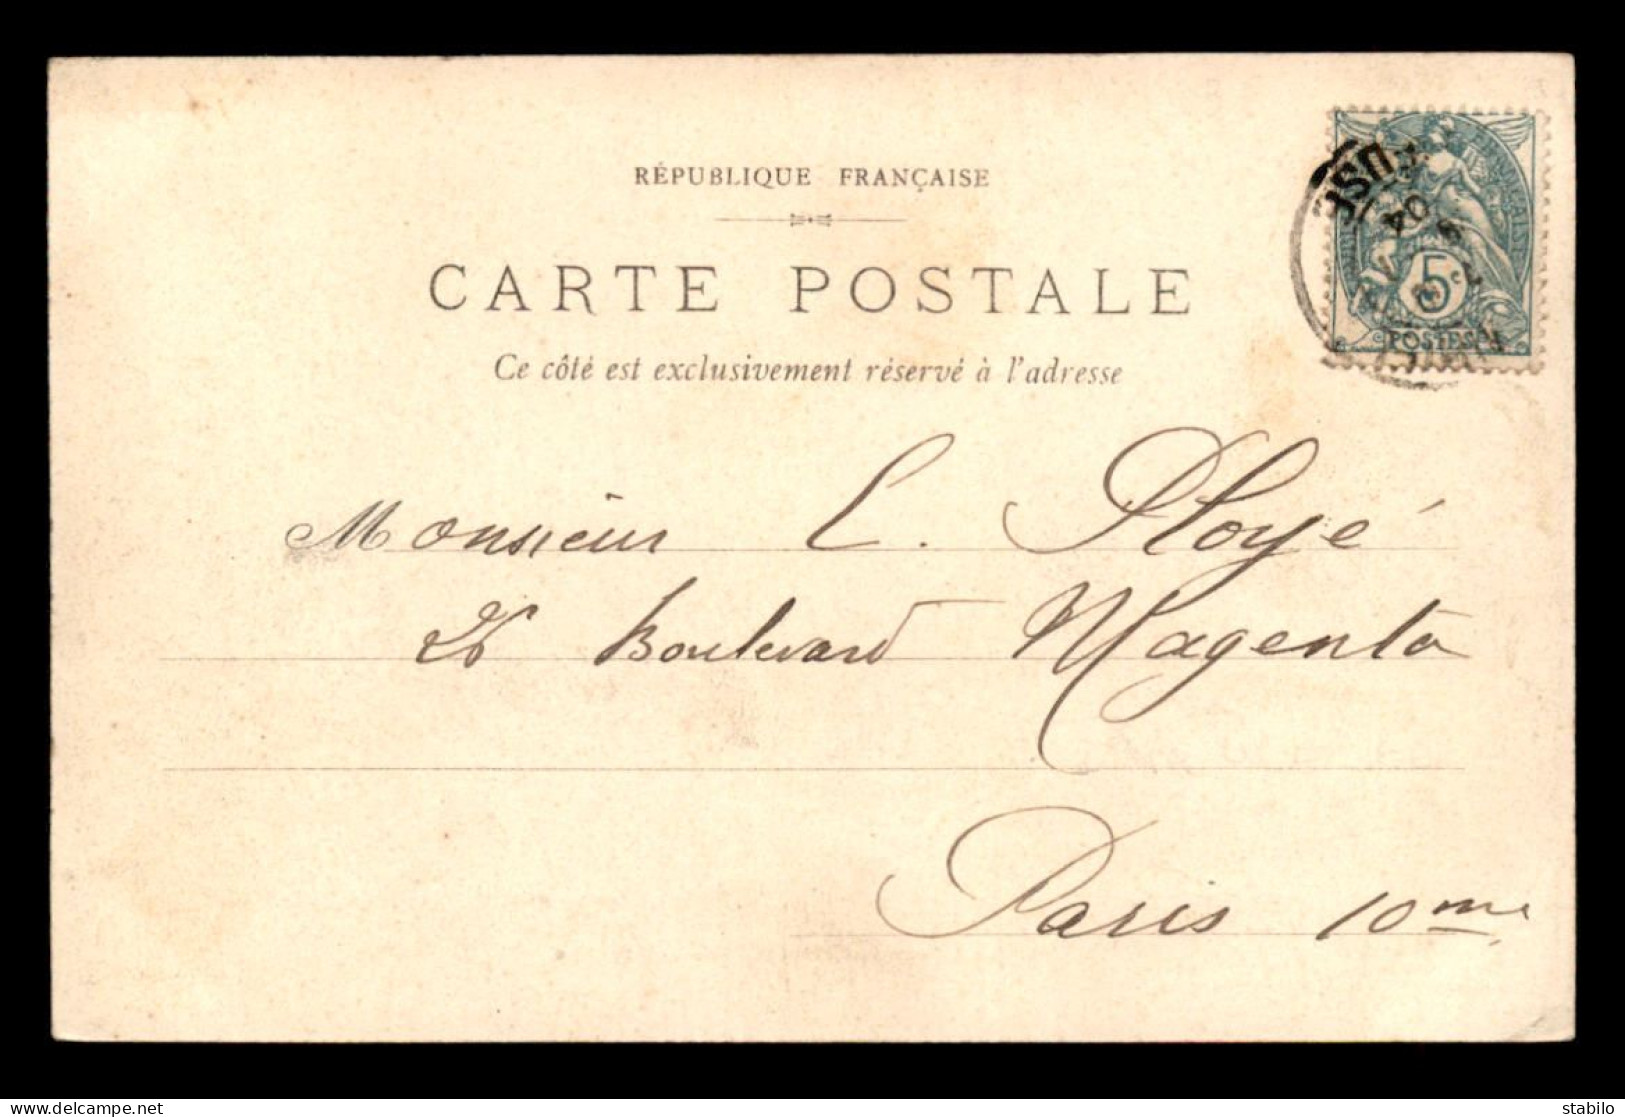 RÉPUBLIQUE FRANÇAISE
CARTE POSTALE
Ce côté est exclusivement réservé à l'adresse
5
POSTES
04
Monsieur L. Ployé
26 Boulevard Magenta
Paris 10me
delcampe.net
stabilo